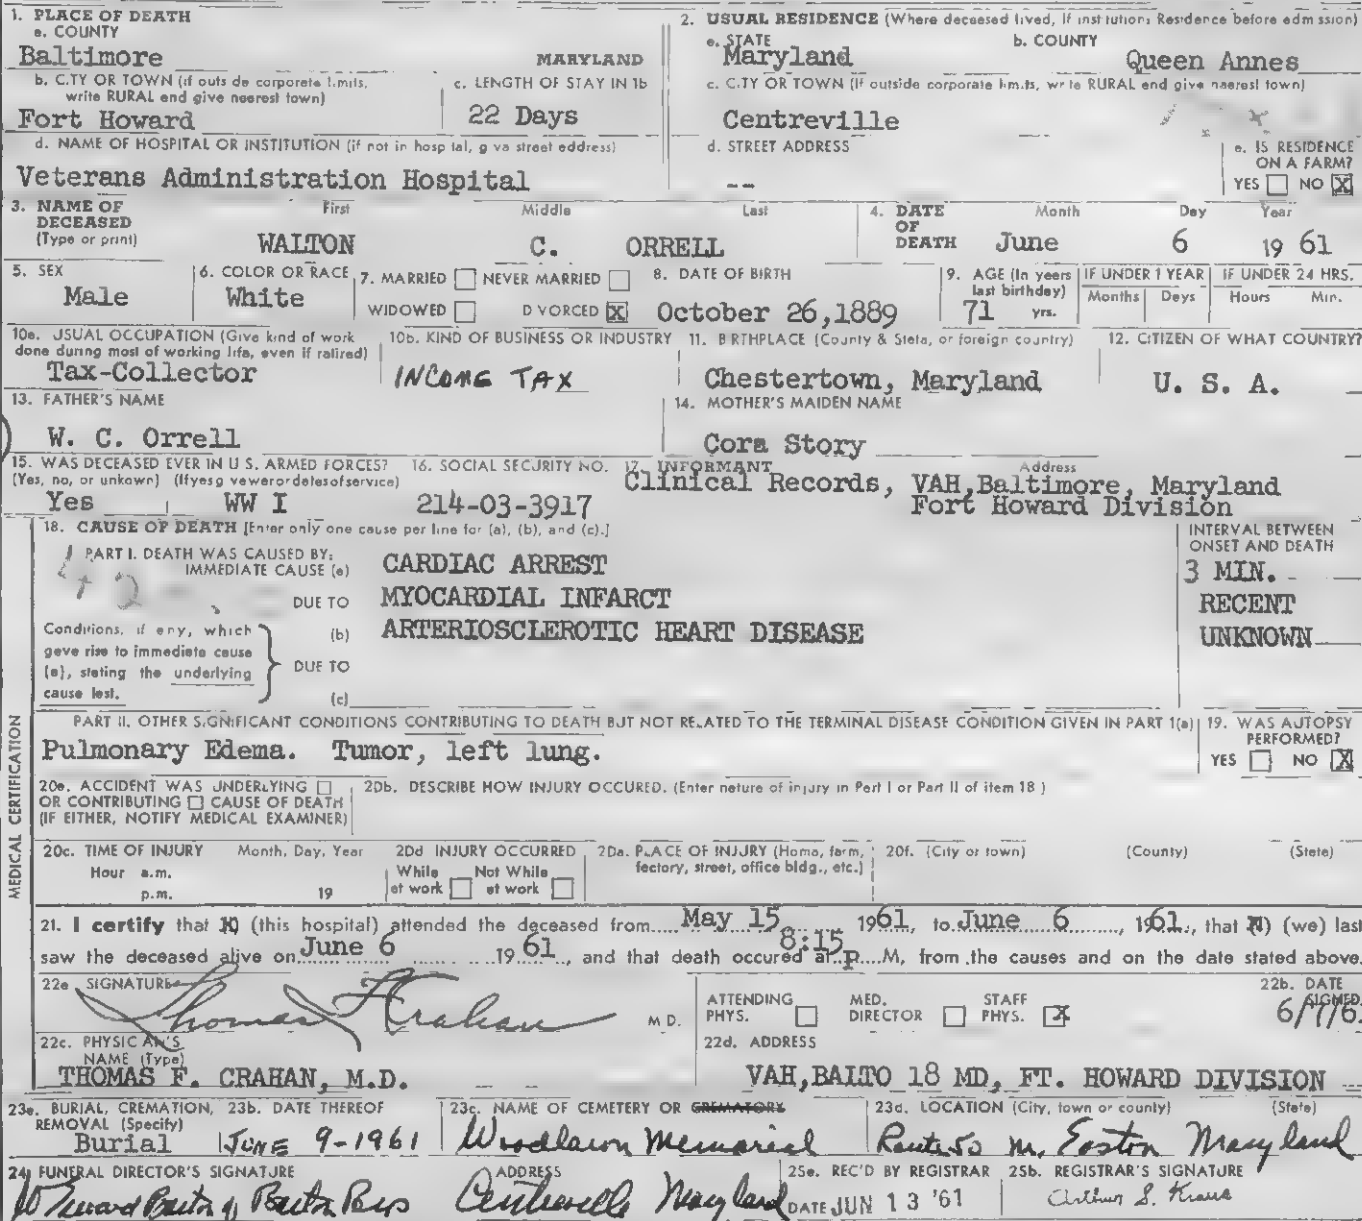 1. PLACE OF DEATH
a. COUNTY
Baltimore MARYLAND
b. CITY OR TOWN (if outside corporate limits, write RURAL and give nearest town)
Fort Howard
c. LENGTH OF STAY IN 1b
22 Days
d. NAME OF HOSPITAL OR INSTITUTION (if not in hospital, give street address)
Veterans Administration Hospital
2. USUAL RESIDENCE (Where deceased lived, If institution: Residence before admission)
a. STATE
Maryland
b. COUNTY
Queen Annes
c. CITY OR TOWN (If outside corporate limits, write RURAL and give nearest town)
Centreville
d. STREET ADDRESS
--
e. IS RESIDENCE ON A FARM?
YES NO X
3. NAME OF DECEASED (Type or print)
First Middle Last
WALTON C. ORRELL
4. DATE OF DEATH
Month Day Year
June 6 19 61
5. SEX
Male
6. COLOR OR RACE
White
7. MARRIED NEVER MARRIED
WIDOWED DIVORCED X
8. DATE OF BIRTH
October 26,1889
9. AGE (In years last birthday)
71 yrs.
IF UNDER 1 YEAR
Months Days
IF UNDER 24 HRS.
Hours Min.
10a. USUAL OCCUPATION (Give kind of work done during most of working life, even if retired)
Tax-Collector
10b. KIND OF BUSINESS OR INDUSTRY
INCOME TAX
11. BIRTHPLACE (County & State, or foreign country)
Chestertown, Maryland
12. CITIZEN OF WHAT COUNTRY?
U. S. A.
13. FATHER'S NAME
W. C. Orrell
14. MOTHER'S MAIDEN NAME
Cora Story
15. WAS DECEASED EVER IN U S. ARMED FORCES?
(Yes, no, or unkown) (If yes give war or dates of service)
Yes WW I
16. SOCIAL SECURITY NO.
214-03-3917
17. INFORMANT Address
Clinical Records, VAH,Baltimore, Maryland
Fort Howard Division
MEDICAL CERTIFICATION
18. CAUSE OF DEATH [Enter only one cause per line for (a), (b), and (c).]
INTERVAL BETWEEN ONSET AND DEATH
PART I. DEATH WAS CAUSED BY:
IMMEDIATE CAUSE (a) CARDIAC ARREST 3 MIN.
DUE TO MYOCARDIAL INFARCT RECENT
(b) ARTERIOSCLEROTIC HEART DISEASE UNKNOWN
DUE TO
(c)
Conditions, if any, which gave rise to immediate cause (a), stating the underlying cause last.
PART II. OTHER SIGNIFICANT CONDITIONS CONTRIBUTING TO DEATH BUT NOT RELATED TO THE TERMINAL DISEASE CONDITION GIVEN IN PART 1(a)
Pulmonary Edema. Tumor, left lung.
19. WAS AUTOPSY PERFORMED?
YES NO X
20a. ACCIDENT WAS UNDERLYING
OR CONTRIBUTING CAUSE OF DEATH
(IF EITHER, NOTIFY MEDICAL EXAMINER)
20b. DESCRIBE HOW INJURY OCCURED. (Enter nature of injury in Part I or Part II of item 18)
20c. TIME OF INJURY Month, Day, Year
Hour a.m.
p.m. 19
20d INJURY OCCURRED
While at work Not While at work
20e. PLACE OF INJURY (Home, farm, factory, street, office bldg., etc.)
20f. (City or town) (County) (State)
21. I certify that (this hospital) attended the deceased from May 15 1961, to June 6, 1961, that (we) last
saw the deceased alive on June 6 19 61, and that death occured at 8:15 P.M, from the causes and on the date stated above.
22a SIGNATURE
Thomas F Crahan M D.
ATTENDING PHYS. MED. DIRECTOR STAFF PHYS. X
22b. DATE SIGNED
6/7/6
22c. PHYSICIAN'S NAME (Type)
THOMAS F. CRAHAN, M.D.
22d. ADDRESS
VAH,BALTO 18 MD, FT. HOWARD DIVISION
23a. BURIAL, CREMATION, REMOVAL (Specify)
Burial
23b. DATE THEREOF
JUNE 9-1961
23c. NAME OF CEMETERY OR CREMATORY
Woodlawn Memorial
23d. LOCATION (City, town or county) (State)
Route 50 Easton Maryland
24. FUNERAL DIRECTOR'S SIGNATURE ADDRESS
Centreville Maryland
25a. REC'D BY REGISTRAR
DATE JUN 13 '61
25b. REGISTRAR'S SIGNATURE
Arthur S. Kraus